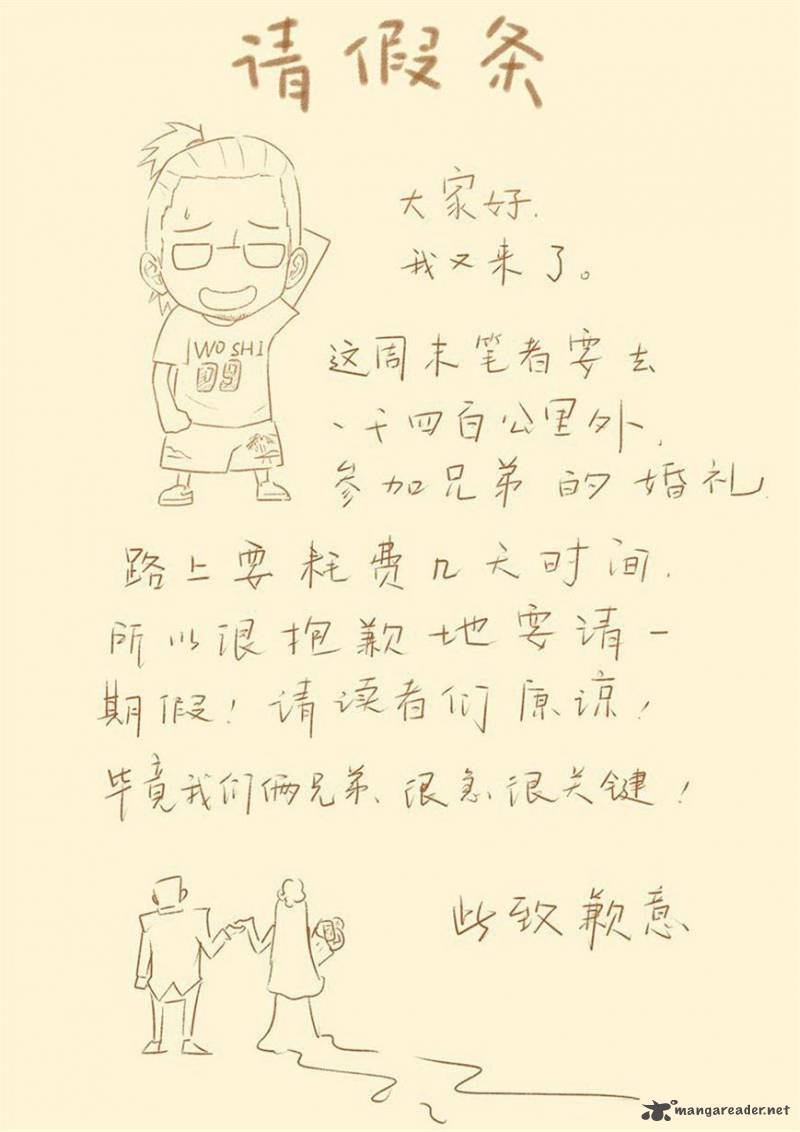 请假条
大家好.
我又来了。
WO SHI
09
这周末笔者要去
一千四百公里外,
参加兄弟的婚礼.
路上要耗费几天时间.
所以很抱歉地要请一
期假!请读者们原谅!
毕竟我们俩兄弟、很急很关键!
此致歉意
mangareader.net